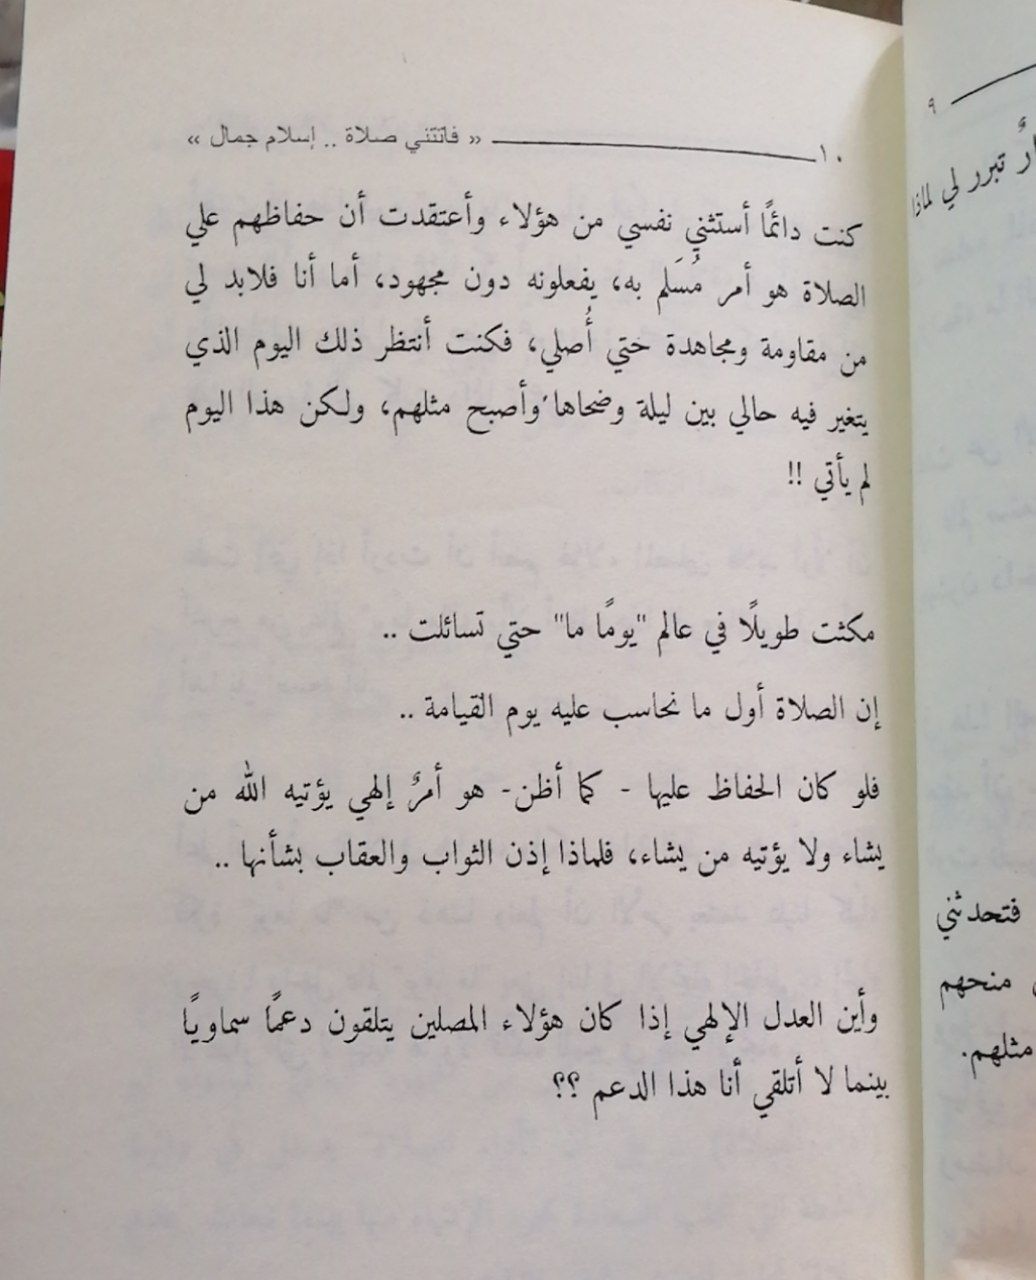 ١٠ « فاتتني صلاة .. إسلام جمال »
كنت دائمًا أستثني نفسي من هؤلاء وأعتقدت أن حفاظهم علي
الصلاة هو أمر مُسَلم به، يفعلونه دون مجهود، أما أنا فلابد لي
من مقاومة ومجاهدة حتي أُصلي، فكنت أنتظر ذلك اليوم الذي
يتغير فيه حالي بين ليلة وضحاها وأصبح مثلهم، ولكن هذا اليوم
لم يأتي !!
مكثت طويلًا في عالم "يومًا ما" حتي تسائلت ..
إن الصلاة أول ما نحاسب عليه يوم القيامة ..
فلو كان الحفاظ عليها - كما أظن- هو أمرٌ إلهي يؤتيه الله من
يشاء ولا يؤتيه من يشاء، فلماذا إذن الثواب والعقاب بشأنها ..
وأين العدل الإلهي إذا كان هؤلاء المصلين يتلقون دعمًا سماويًا
بينما لا أتلقي أنا هذا الدعم ؟؟
٩
تبرر لي لماذا
فتحدثني
منحهم
مثلهم.